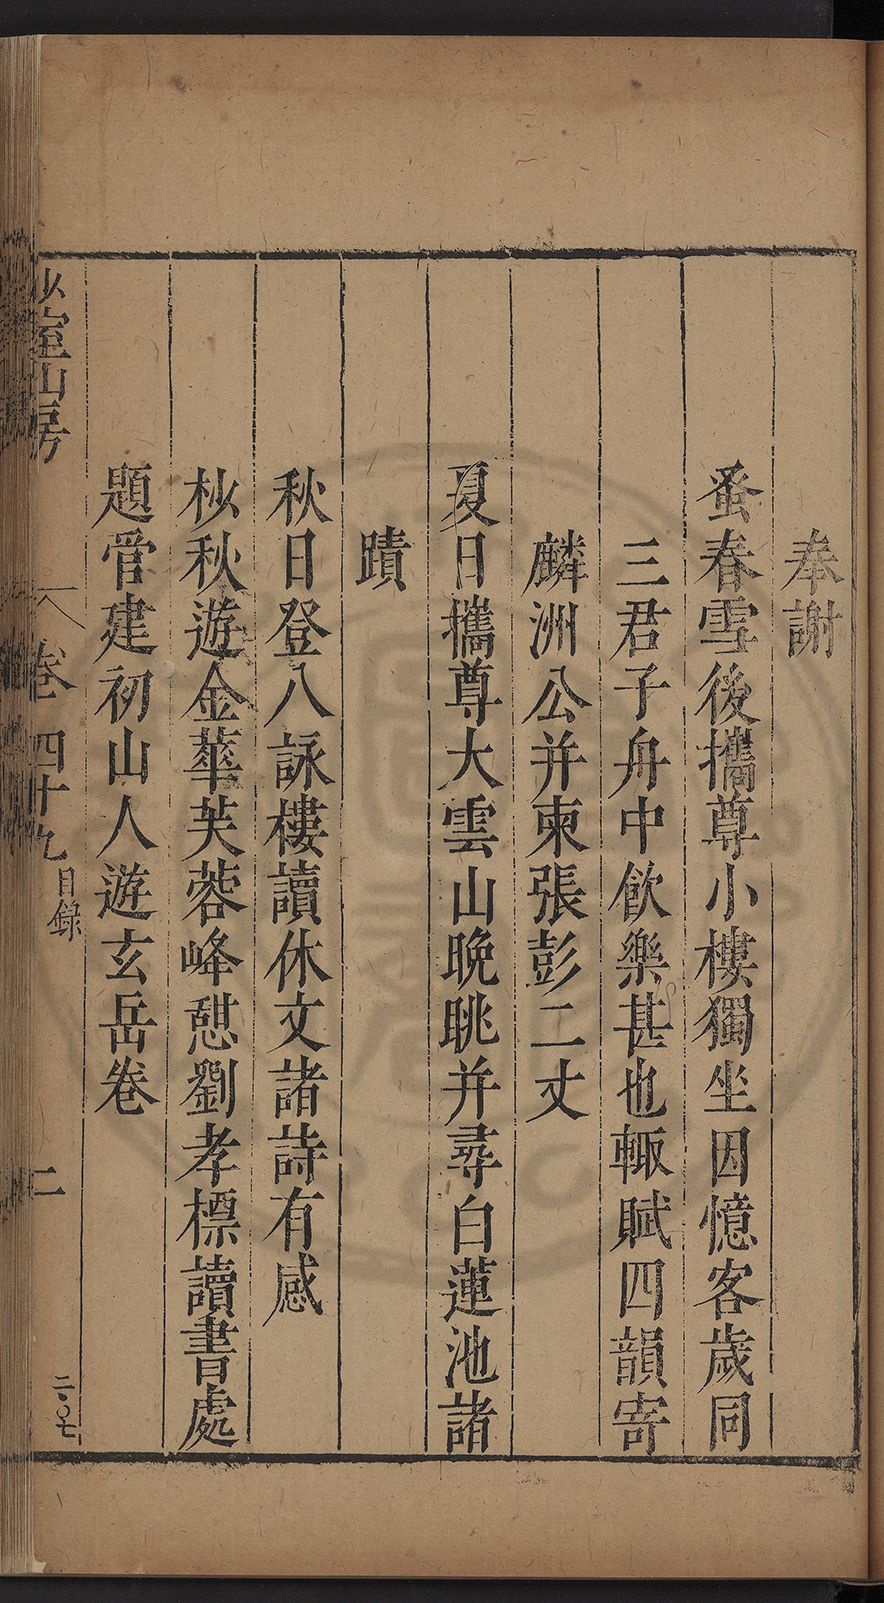 奉謝
蚤春雪後攜尊小樓獨坐因憶客歲同
三君子舟中飲樂甚也輙賦四韻寄
麟洲公并柬張彭二丈
夏日攜尊大雲山晩眺并尋白蓮池諸
蹟
秋日登八詠樓讀休文諸詩有感
杪秋遊金華芙蓉峰憇劉孝標讀書處
題管建初山人遊玄岳卷
少室山房
卷四十九
目錄
二
二〇七